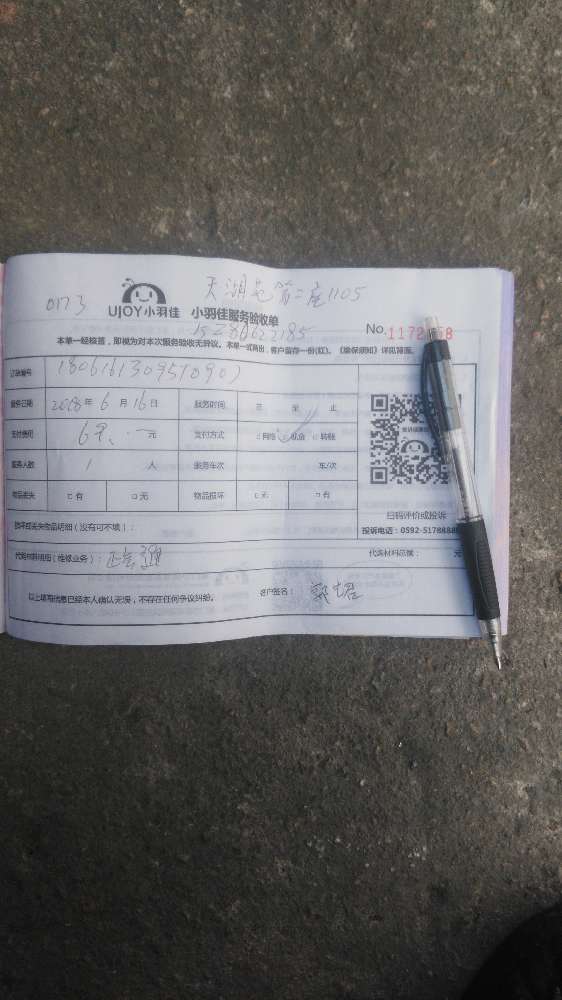 0173
天湖苑第二座1105
UJOY小羽佳 小羽佳服务验收单
15280622185
No. 1172
本单一经核签，即视为对本次服务验收无异议。本单一式两出，客户留存一份(红)。《维保须知》详见背面。
订单编号
服务日期 2018年 6 月 16 日 服务时间 至 止
支付费用 元 支付方式 □网络 现金 □转账
服务人数 1 人 服务车次 车/次
物品丢失 □有 □无 物品损坏 □无 □有
扫码评价或投诉
损坏或丢失物品明细（没有可不填）：
投诉电话：0592-5178888
代购材料明细（维修业务）： 代购材料总额： 元
以上填写信息已经本人确认无误，不存在任何争议纠纷。 客户签名：